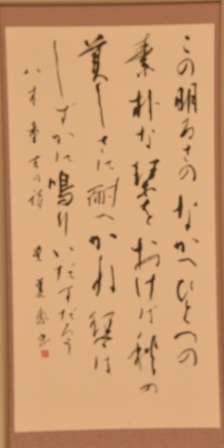 この明るさのなかへひとつの
素朴な琴をおけば秋の
美しさに耐へかね琴は
しずかに鳴りいだすだろう
八木重吉の詩